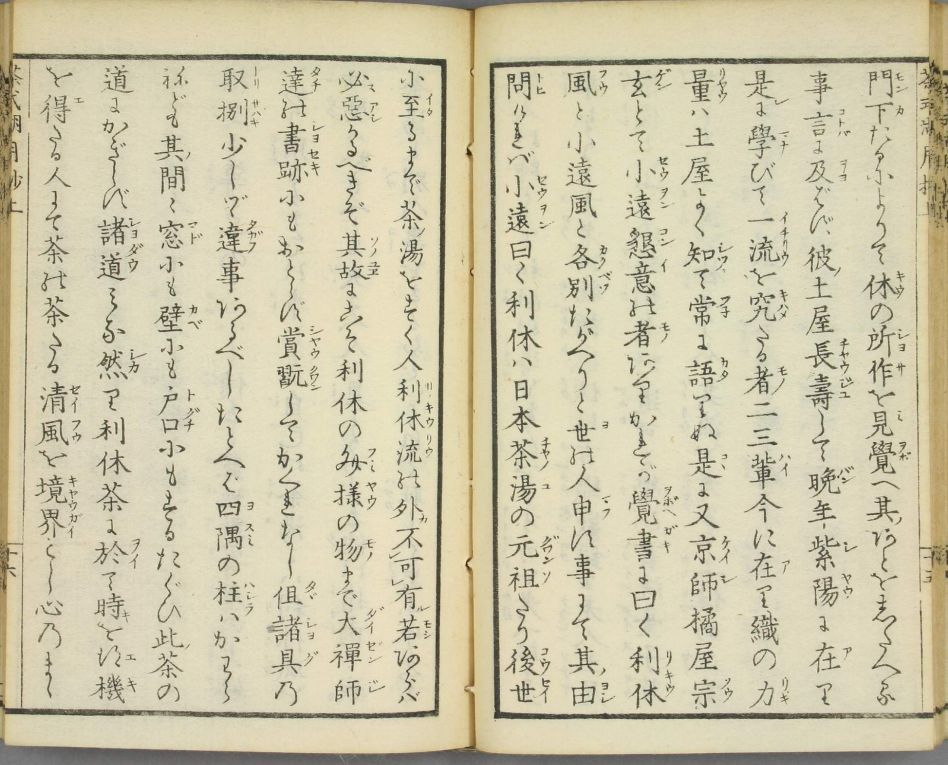 門下たるによりて休の所作を見覺へ其あとをしたへる
事言に及ばず彼ノ土屋長壽して晩年紫陽に在り
是に學びて一流を究たる者二三輩今に在り織の力
量ハ土屋よく知て常に語りぬ是に又京師橘屋宗
玄とて小遠懇意の者ありかれが覺書に曰く利休
風と小遠風と各別たがへりと世の人申す事にて其由
問ければ小遠曰く利休ハ日本茶湯の元祖たり後世
に至るまで茶ノ湯をすく人利休流の外不可有若あらば
必惡かるべきぞ其故にこそ利休の文様の物まで大禪師
達の書跡にもおとらず賞翫してかくれなし但諸具乃
取捌少しづゝ違事あるべしたとへば四隅の柱ハかわら
ねども其間ニ窓にも壁にも戸口にもするたぐひ此茶の
道にかぎらず諸道みな然り利休茶に於て時をえ機
を得たる人にて茶の茶たる清風を境界とし心乃まゝ
茶式湖月抄上
十六